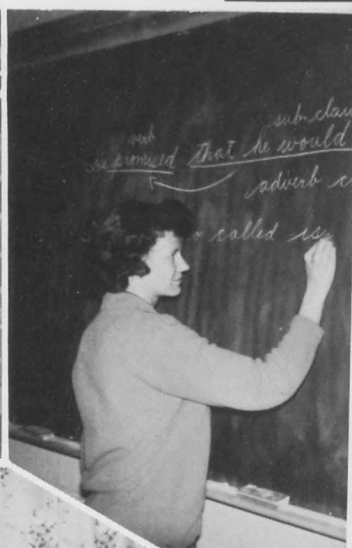 sub. clau
verb
He promised that he would
adverb c
called is